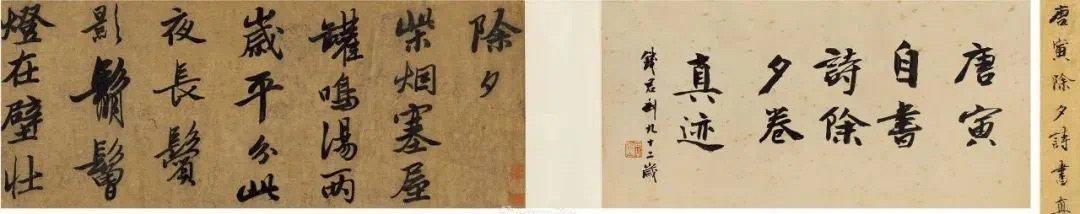 唐寅除夕詩書真
唐寅
自書
詩除
夕卷
真迹
錢君匋九十二歲
除夕
柴烟塞屋
罐鳴湯兩
歲平分此
夜長鬢
影鬅鬙
燈在壁壯